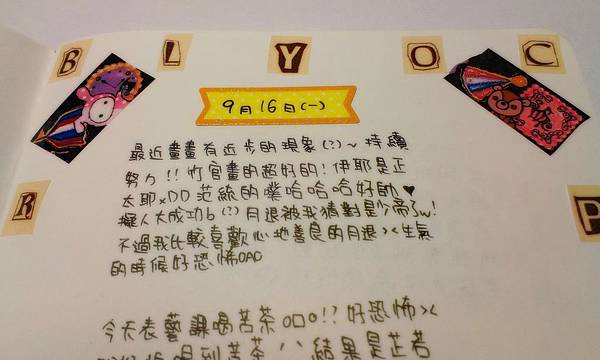 B L Y O C
R P
9月16日(一)
最近畫畫有近步的現象(?)~持續
努力!!竹官畫的超好的!伊耶是正
太耶xDD范統的噗哈哈哈好帥♥
擬人大成功b(?)月退被我猜對是少帝了w!
不過我比較喜歡心地善良的月退><生氣
的時候好恐怖QAQ
今天表藝課喝苦茶口口!?好恐怖><
喝到苦茶 結果是芷若